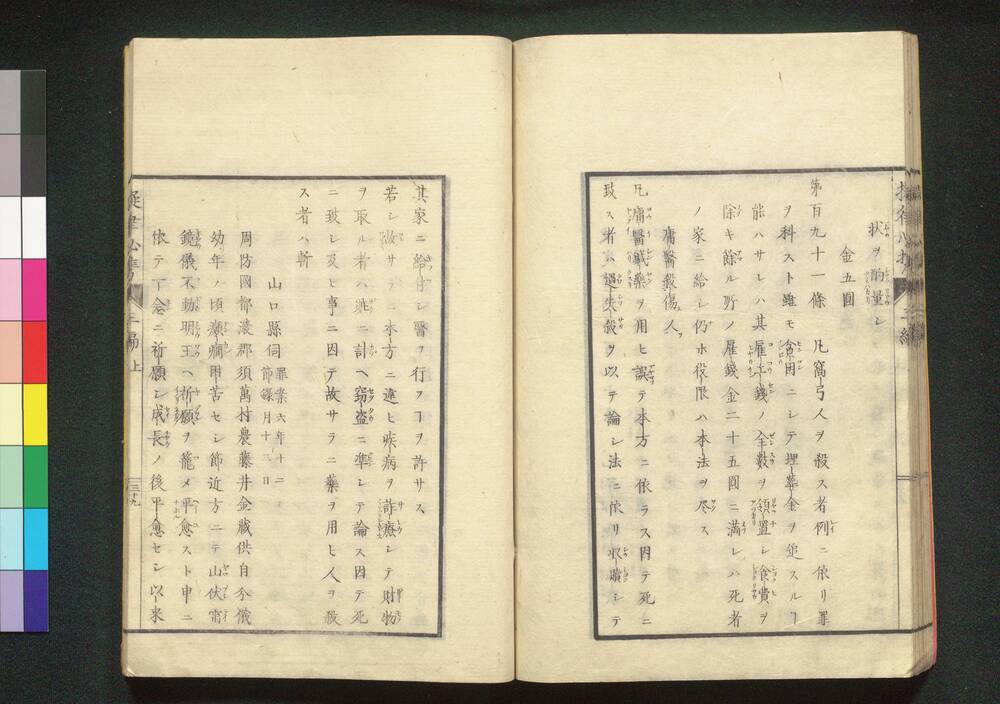 状ヲ酌量シ
金五圓
第百九十一條 凡窩弓人ヲ殺ス者例ニ依リ罪
ヲ科スト雖モ貧困ニシテ埋葬金ヲ追スルヿ
能ハサレハ其雇工錢ノ全数ヲ領置シ食費ヲ
除キ餘ル所ノ雇錢金二十五圓ニ満レハ死者
ノ家ニ給シ仍ホ役限ハ本法ヲ尽ス
庸醫殺傷人
凡庸醫鍼藥ヲ用ヒ誤テ本方ニ依ラス因テ死ニ
致ス者ハ過失殺ヲ以テ論シ法ニ依リ収贖シテ
其家ニ給付シ醫ヲ行フヿヲ許サス
若シ故サラニ本方ニ違ヒ疾病ヲ詐療シテ財物
ヲ取ル者ハ贓ニ計ヘ窃盗ニ凖シテ論ス因テ死
ニ致シ及ヒ事ニ因テ故サラニ藥ヲ用ヒ人ヲ殺
ス者ハ斬
山口縣伺 罪案六年十二
節録月十三日
周防國都濃郡須萬村農藤井金蔵供自分儀
幼年ノ頃癲癇相苦セシ節近方ニテ山伏雷
鏡儀不動明王ヘ祈願ヲ籠メ平愈スト申ニ
依テ一念ニ祈願シ成長ノ後平愈セシ以来
三編 上
三十九